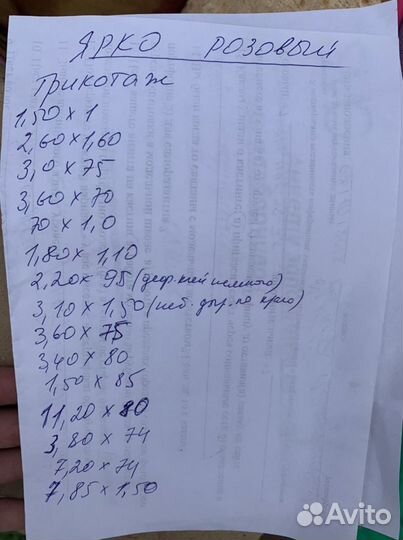 ЯРКО РОЗОВЫЙ
Трикотаж
1,50 х 1
2,60 х 1,60
3,0 х 75
3,60 х 70
70 х 1,0
1,80 х 1,10
2,20 х 95 (деф. клей немного)
3,10 х 1,50 (неб. дыр. по краю)
3,60 х 75
3,40 х 80
1,50 х 85
11,20 х 80
3,80 х 74
7,20 х 74
7,85 х 1,50
Avito